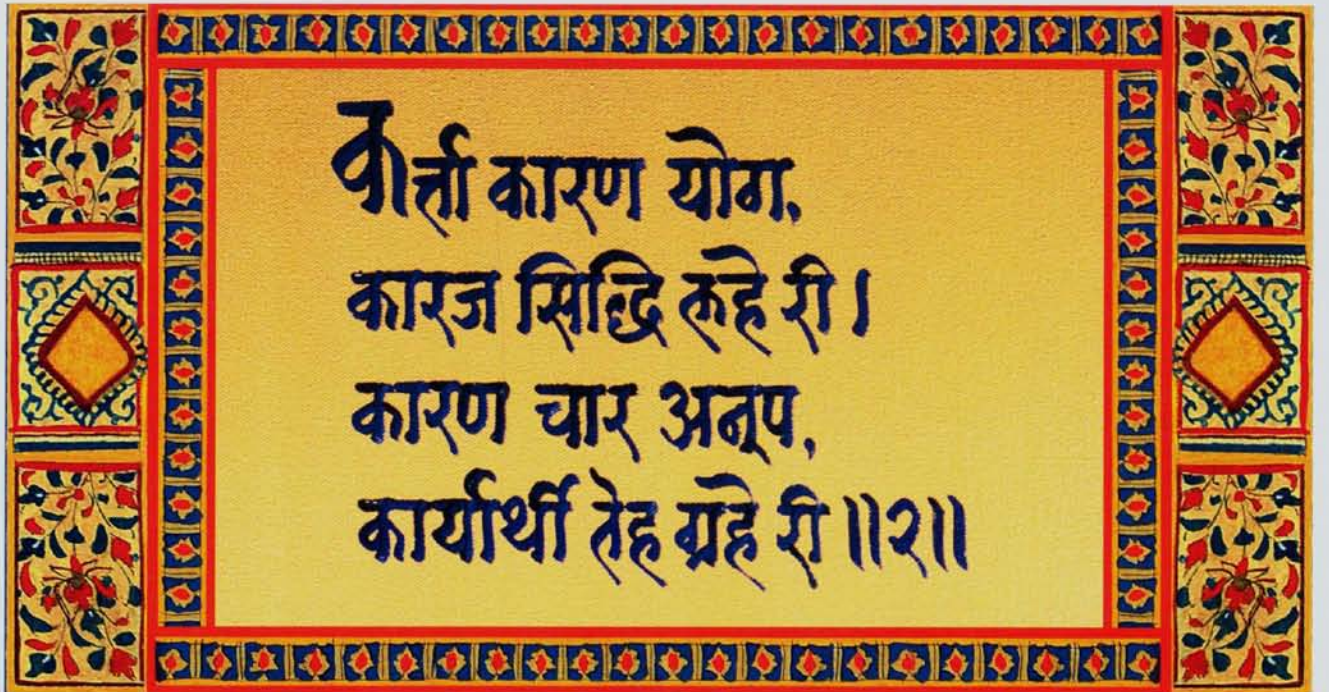 कर्त्ता कारण योग,
कारज सिद्धि लहे री।
कारण चार अनूप,
कार्यार्थी तेह ग्रहे री॥२॥